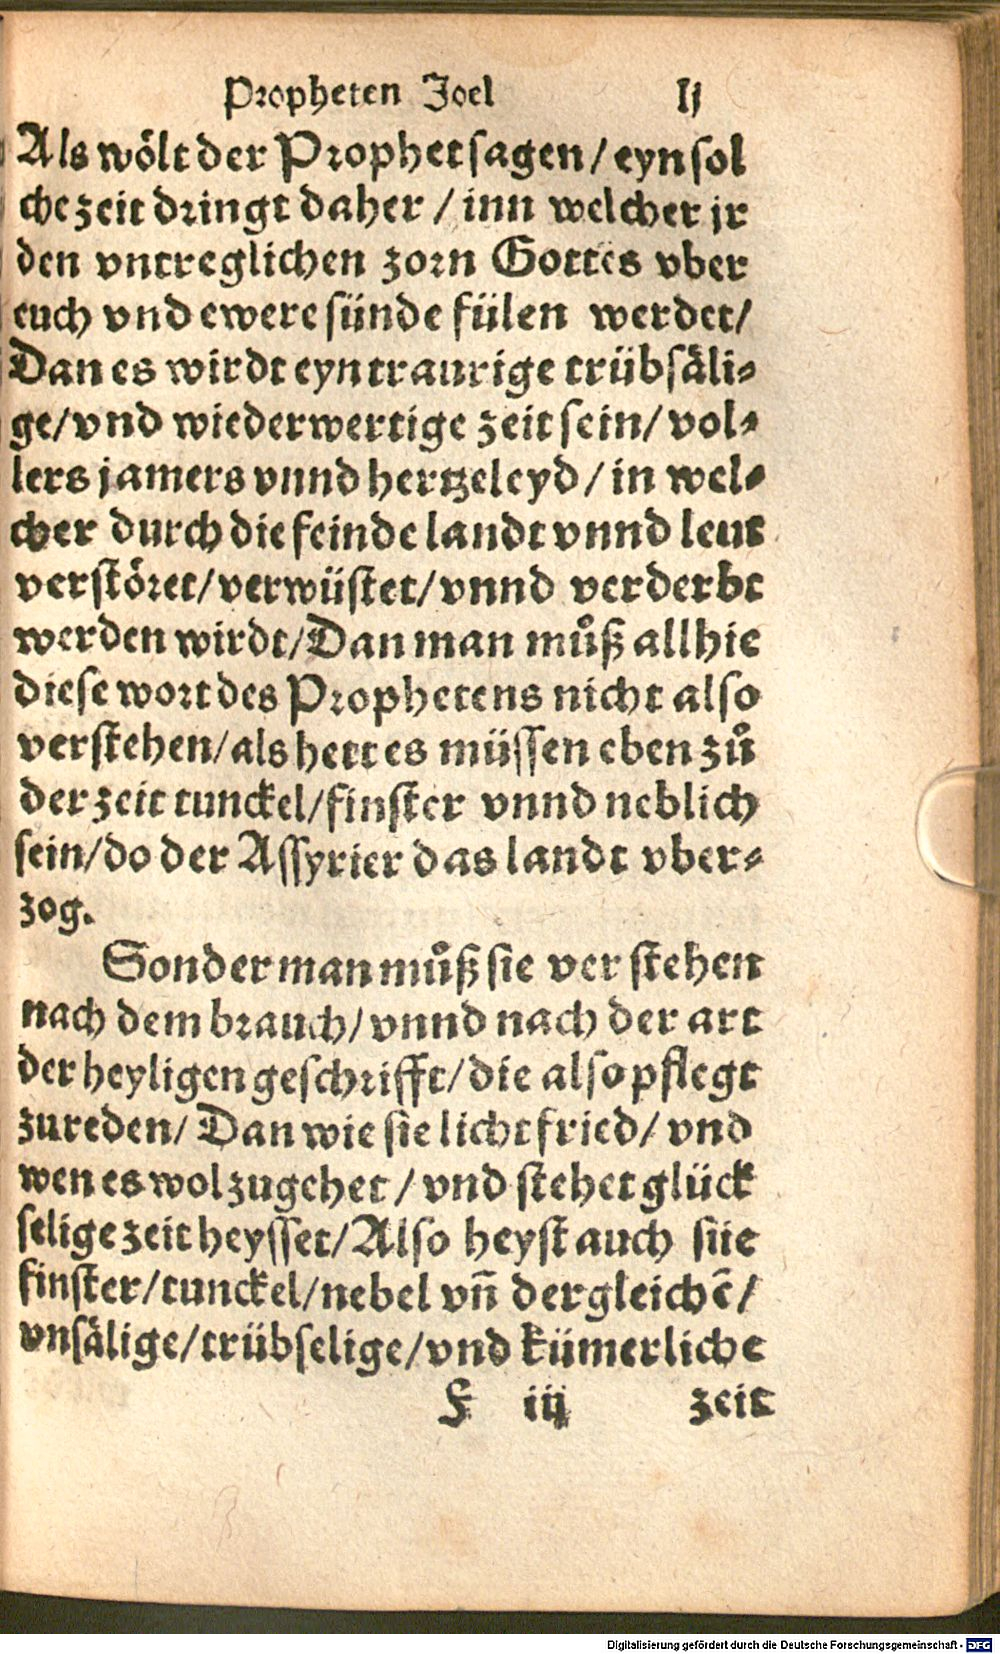 Propheten Joel lj
Als wölt der Prophet sagen / eyn sol
che zeit dringt daher / inn welcher jr
den vntreglichen zorn Gottes vber
euch vnd ewere sünde fülen werdet /
Dan es wirdt eyn traurige trübsäli⸗
ge / vnd wiederwertige zeit sein / vol⸗
lers jamers vnnd hertzeleyd / in wel⸗
cher durch die feinde landt vnnd leut
verstöret / verwüstet / vnnd verderbt
werden wirdt / Dan man muͦß allhie
diese wort des Prophetens nicht also
verstehen / als hett es müssen eben zuͦ
der zeit tunckel / finster vnnd neblich
sein / do der Assyrier das landt vber⸗
zog.
Sonder man muͦß sie verstehen
nach dem brauch / vnnd nach der art
der heyligen geschrifft / die also pflegt
zureden / Dan wie sie licht fried / vnd
wen es wol zugehet / vnd stehet glück
selige zeit heysset / Also heyst auch siie
finster / tunckel / nebel vn̄ dergleichē /
vnsälige / trübselige / vnd kümerliche
F iij zeit
Digitalisierung gefördert durch die Deutsche Forschungsgemeinschaft - DFG